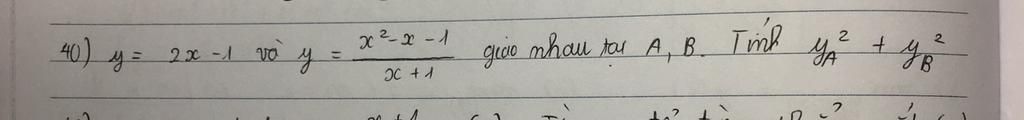 40) y = 2x - 1 và y = \frac{x^2 - x - 1}{x + 1} giao nhau tại A, B. Tính y_A^2 + y_B^2